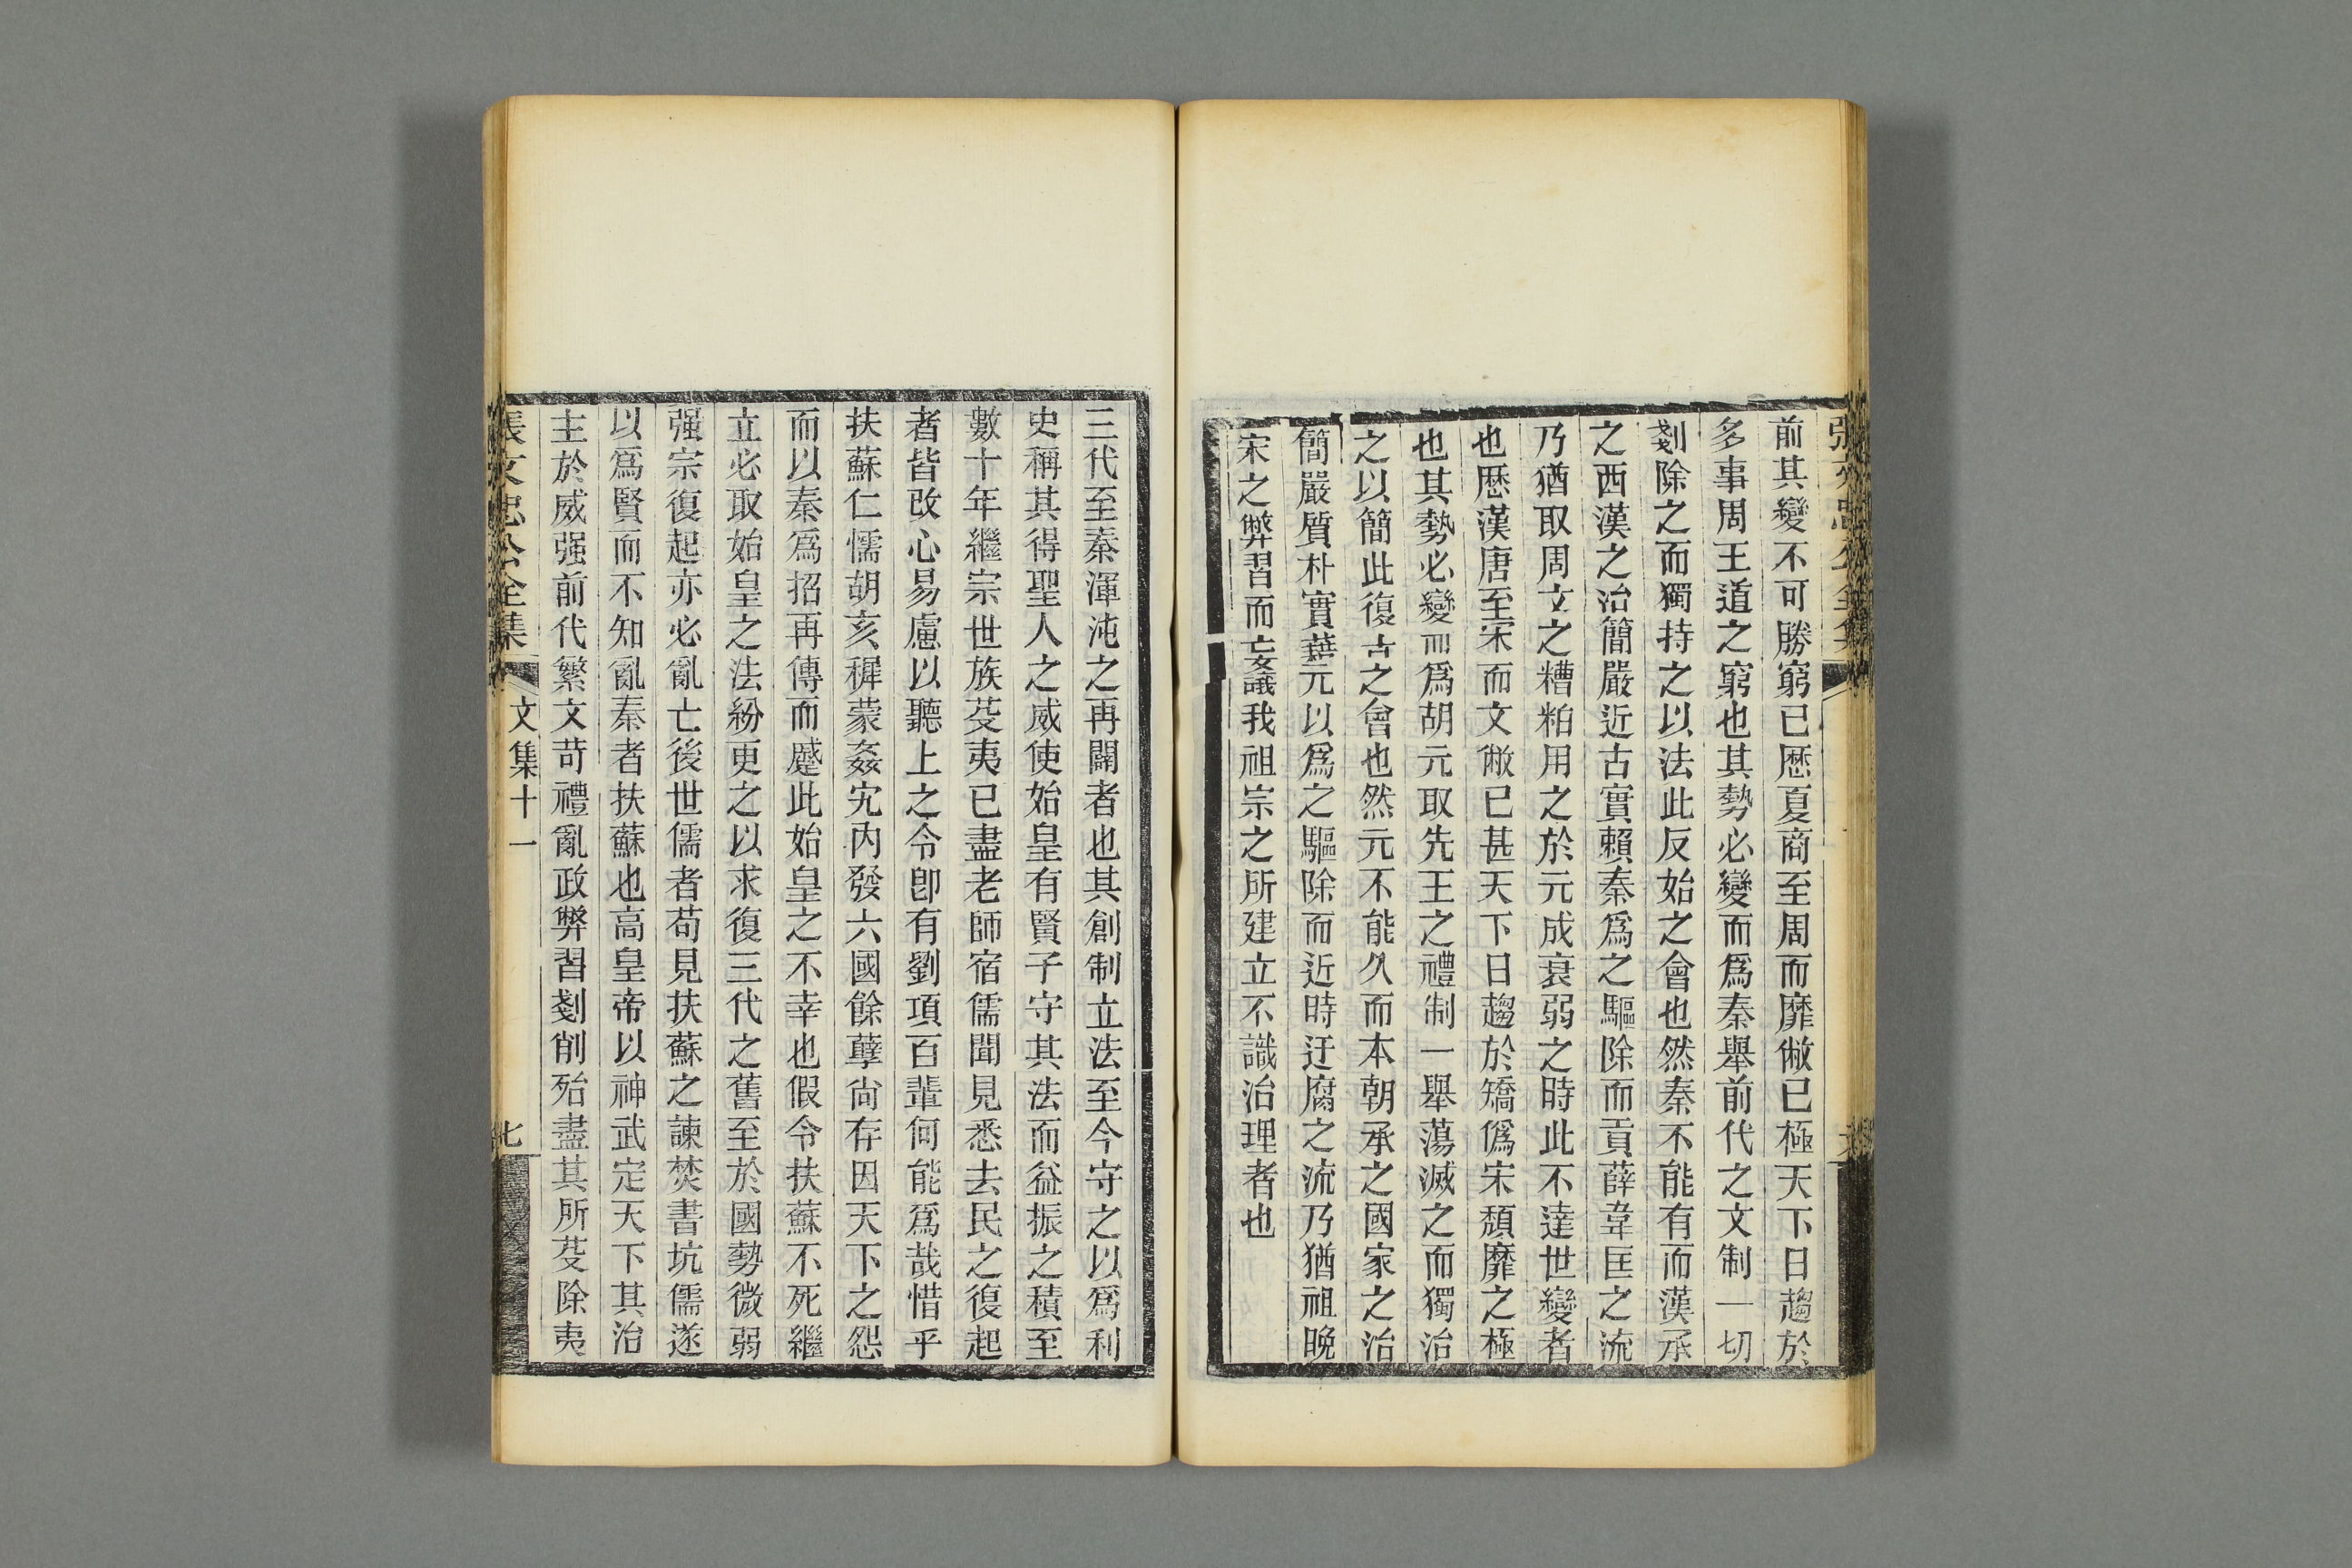 張文忠公全集
前其變不可勝窮已歷夏商至周而靡敝已極天下日趨於
多事周王道之窮也其勢必變而爲秦舉前代之文制一切
剗除之而獨持之以法此反始之會也然秦不能有而漢承
之西漢之治簡嚴近古實賴秦爲之驅除而貢薛韋匡之流
乃猶取周文之糟粕用之於元成衰弱之時此不達世變者
也歷漢唐至宋而文敝已甚天下日趨於矯僞宋頹靡之極
也其勢必變而爲胡元取先王之禮制一舉蕩滅之而獨治
之以簡此復古之會也然元不能久而本朝承之國家之治
簡嚴質朴實藉元以爲之驅除而近時迂腐之流乃猶祖晚
宋之弊習而妄議我祖宗之所建立不識治理者也
三代至秦渾沌之再闢者也其創制立法至今守之以爲利
史稱其得聖人之威使始皇有賢子守其法而益振之積至
數十年繼宗世族芟夷已盡老師宿儒聞見悉去民之復起
者皆改心易慮以聽上之令卽有劉項百輩何能爲哉惜乎
扶蘇仁懦胡亥穉蒙姦宄內發六國餘孽尙存因天下之怨
而以秦爲招再傳而蹙此始皇之不幸也假令扶蘇不死繼
立必取始皇之法紛更之以求復三代之舊至於國勢微弱
强宗復起亦必亂亡後世儒者苟見扶蘇之諫焚書坑儒遂
以爲賢而不知亂秦者扶蘇也高皇帝以神武定天下其治
主於威强前代繁文苛禮亂政弊習剗削殆盡其所芟除夷
張文忠公全集 文集十一 七